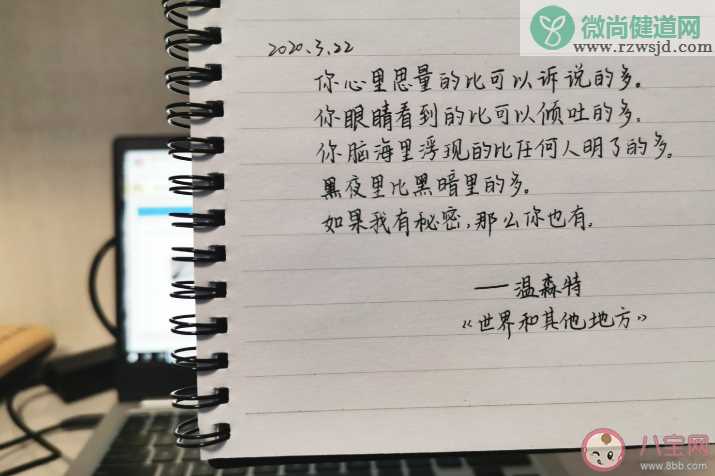 微尚健道网
www.rzwsjd.com
2020.3.22
你心里思量的比可以诉说的多。
你眼睛看到的比可以倾吐的多。
你脑海里浮现的比任何人明了的多。
黑夜里比黑暗里的多。
如果我有秘密,那么你也有。
——温森特
《世界和其他地方》
八宝网
www.8bb.com